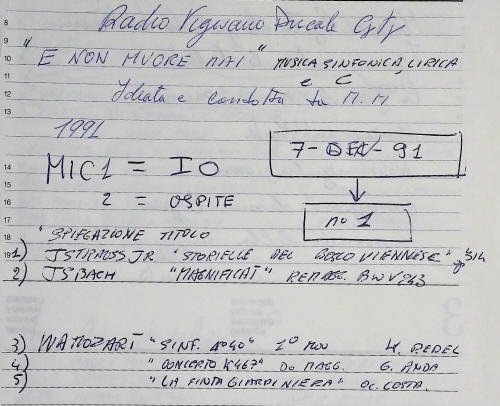 Radio Vigevano Ducale City
"E NON MUORE MAI" MUSICA SINFONICA, LIRICA
e C
Ideata e condotta da M.M
1991
7- DEC - 91
MIC1 = IO
2 = OSPITE
no 1
"SPIEGAZIONE TITOLO
1) JSTRAUSS JR "STORIELLE DEL BOSCO VIENNESE" op 314
2) JSBACH "MAGNIFICAT" RE MAGG. BWV 243
3) WAMOZART "SINF. no 40" Io MOV H. REDEL
4) "CONCERTO K467" DO MAGG. G. ANDA
5) "LA FINTA GIARDINIERA" OC. COSTA.
8
9
10
11
12
13
14
15
16
17
18
19